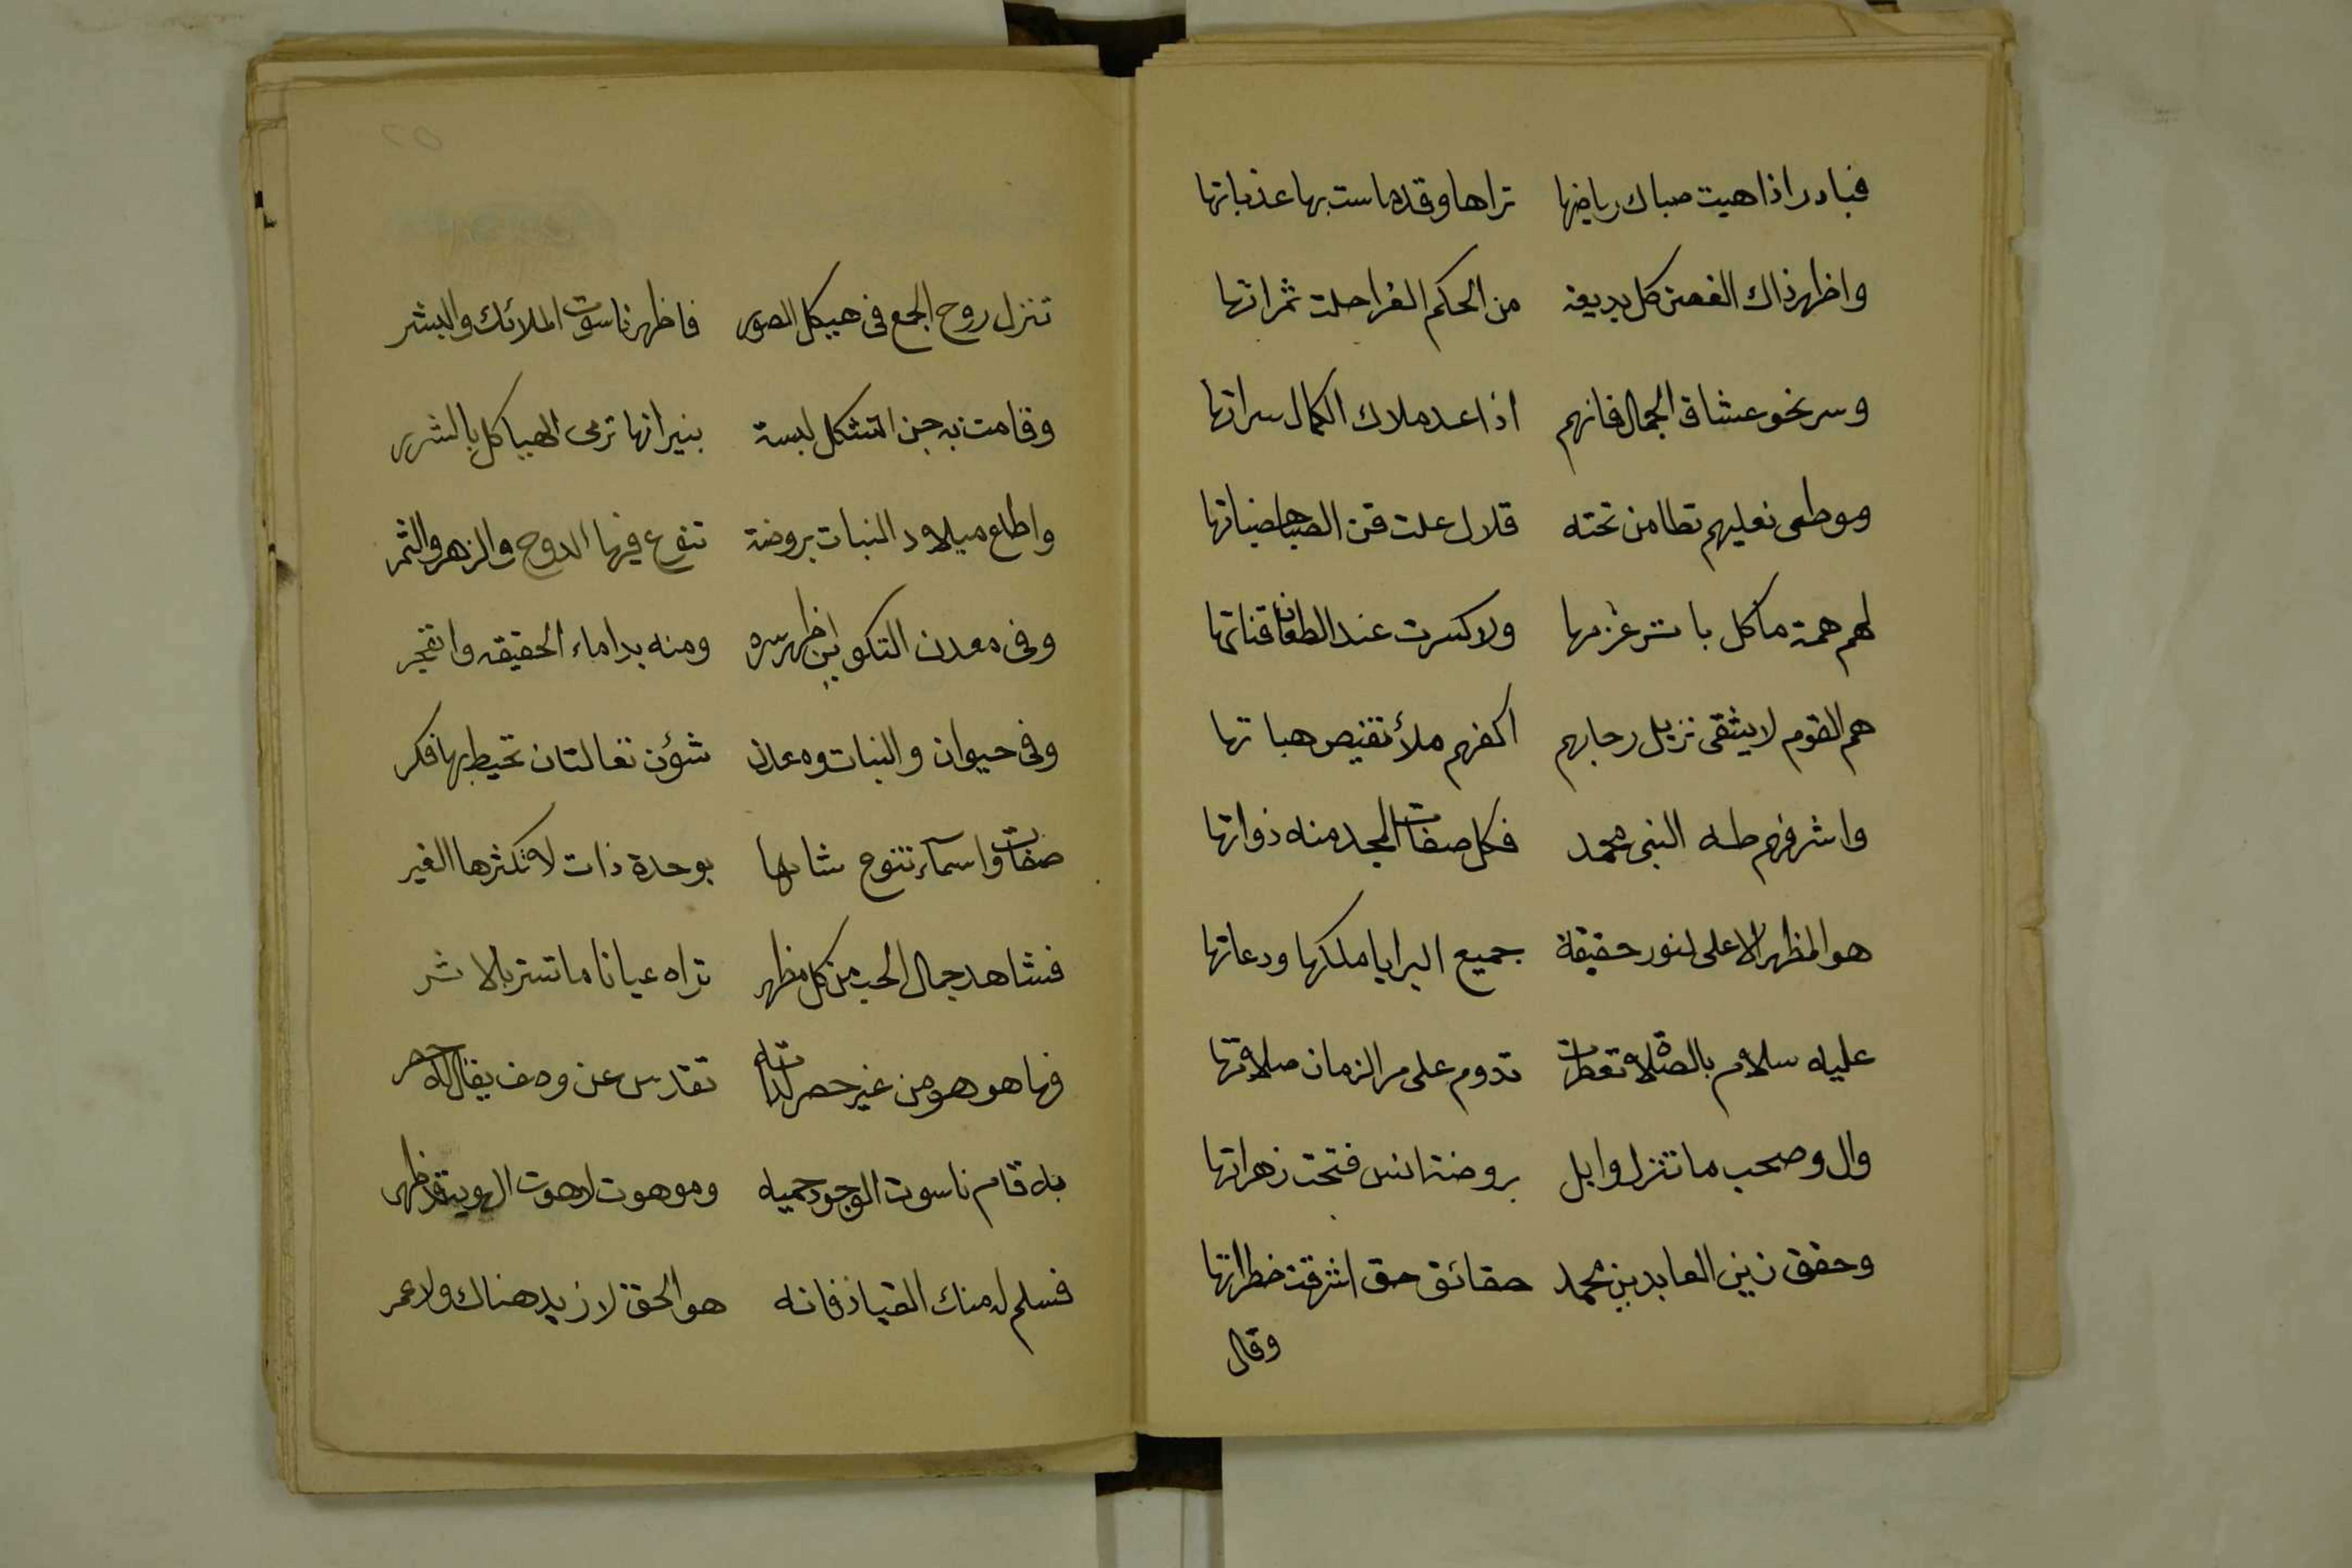 فبادر اذا هبت صباك رياضها تراها وقد ماست بها عذباتها
واظهر ذاك الغصن كل بديعة من الحكم الغرا حلت ثمراتها
وسر نحو عشاق الجمال فانهم اذا عد ملاك الكمال سراتها
وموطى نعليهم تطامن تحته قلال علت قنن
لهم همة ما كل باتر عزمها ولا كسرت عند الطعان قناتها
هم القوم لا يشقى نزيل رحابهم اكفهم ملأ تفيض هباتها
واشرفهم طه النبي محمد فكل صفات المجد منه ذواتها
هو المظهر الاعلى لنور حقيقة جميع البرايا ملكها ودعاتها
عليه سلام بالصلاة تعطرت تدوم على مر الزمان صلاتها
وال وصحب ما تنزل وابل بروضة انس فتحت زهراتها
وحقق زين العابدين محمد حقائق حق اشرقت خطراتها
وقال
٥٢
تنزل روح الجمع في هيكل الصور فاظهر ناسوت الملائك والبشر
وقامت به جن التشكل لبسة بنيرانها ترمى الهياكل بالشرر
واطلع ميلاد النبات بروضة تنوع فيها الدوح والزهر والثمر
وفي معدن التكوين اظهر سره ومنه بدا ماء الحقيقه وانفجر
وفي حيوان والنبات ومعدن شؤن تعالت ان تحيط بها فكر
صفات واسماء تنوع شانها بوحدة ذات لا تكثرها الغير
فشاهد جمال الحب من كل مظهر تراه عيانا ما تستر بالاثر
فها هو هو من غير حصر لذاته تقدس عن وصف يقال له حصر
به قام ناسوت الوجود جميعه وموهوت لاهوت الهوية قد ظهر
فسلم له منك القياد فانه هو الحق لا زيد هناك ولا عمر